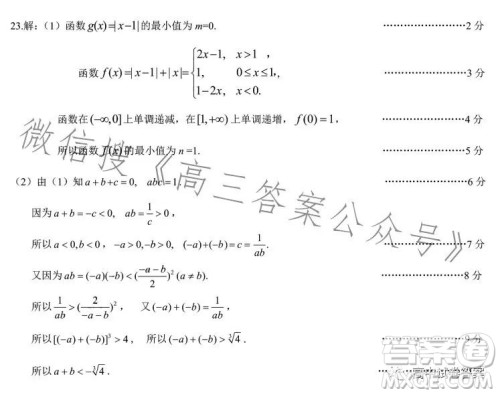 23.解：（1）函数 g(x)=|x−1| 的最小值为 m=0. ………………2 分
函数 f(x)=|x−1|+|x|={2x−1, x>1，
1, 0≤x≤1，
1−2x, x<0. ………………3 分
函数在 (−∞,0] 上单调递减，在 [1,+∞) 上单调递增，f(0)=1， ………………4 分
所以函数 f(x) 的最小值为 n=1. ………………5 分
（2）由（1）知 a+b+c=0, abc=1. ………………6 分
因为 a+b=−c<0, ab=1/c>0，
所以 a<0,b<0，−a>0,−b>0, (−a)+(−b)=c=1/ab. ………………7 分
又因为 ab=(−a)(−b)<((−a−b)/2)² (a≠b). ………………8 分
所以 1/ab>(2/(−a−b))²， 又 (−a)+(−b)=1/ab，
所以 [(−a)+(−b)]³>4， 所以 (−a)+(−b)>∛4. ………………9 分
所以 a+b<−∛4.
微信搜《高三答案公众号》
答案圈